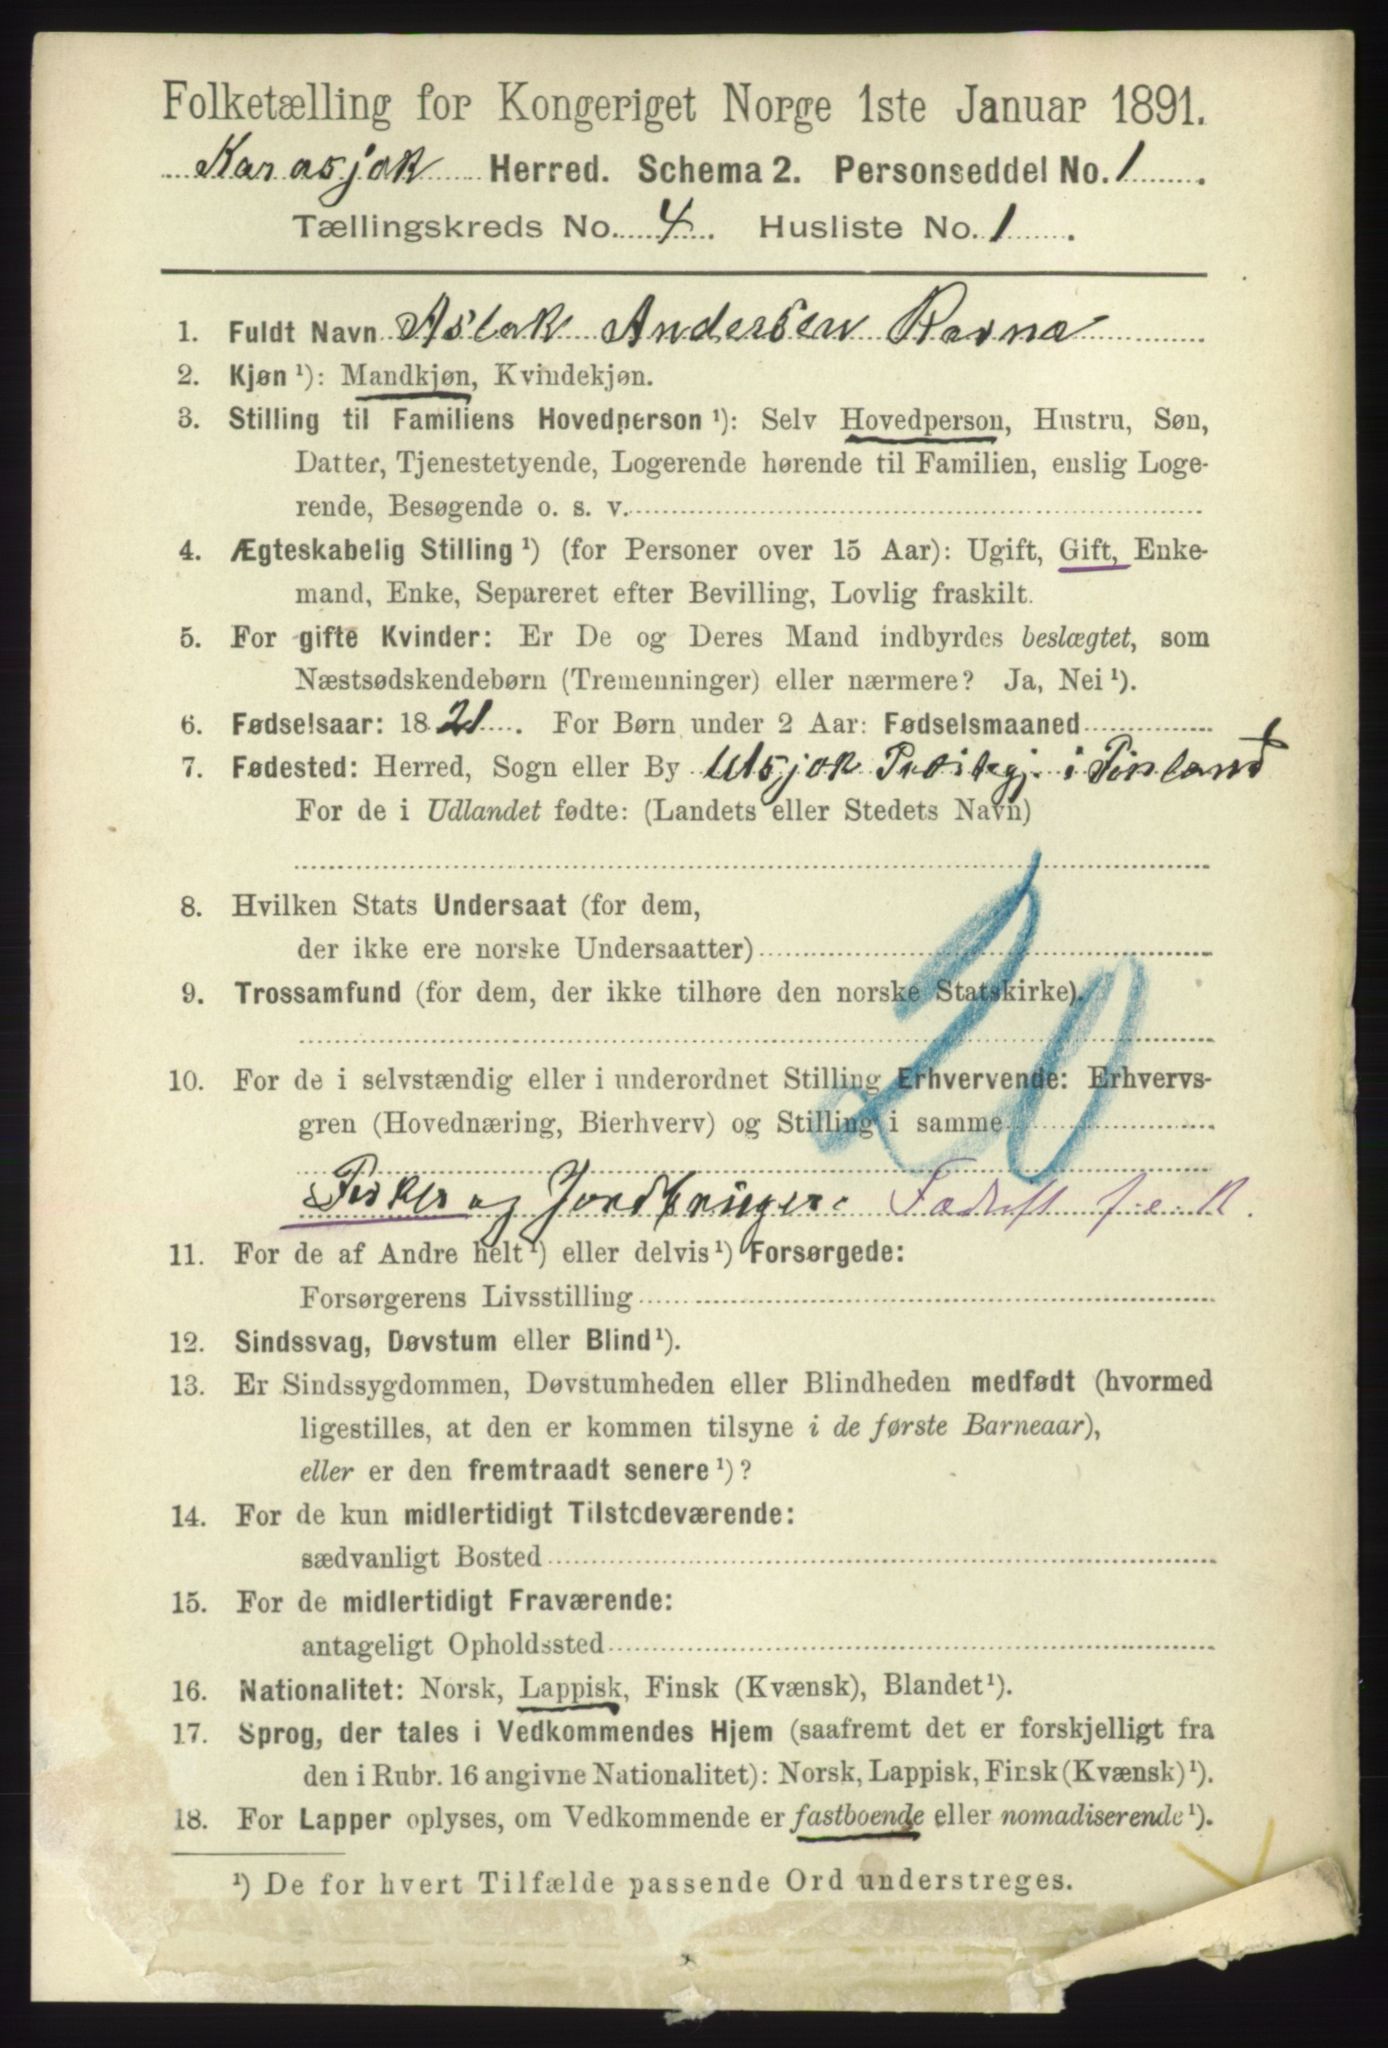 Folketælling for Kongeriget Norge 1ste Januar 1891.
Karasjok Herred. Schema 2. Personseddel No. 1
Tællingskreds No. 4. Husliste No. 1.
1. Fuldt Navn Aslak Andersen Ravna
2. Kjøn ¹): Mandkjøn, Kvindekjøn.
3. Stilling til Familiens Hovedperson ¹): Selv Hovedperson, Hustru, Søn,
Datter, Tjenestetyende, Logerende hørende til Familien, enslig Loge-
rende, Besøgende o. s. v.
4. Ægteskabelig Stilling ¹) (for Personer over 15 Aar): Ugift, Gift, Enke-
mand, Enke, Separeret efter Bevilling, Lovlig fraskilt.
5. For gifte Kvinder: Er De og Deres Mand indbyrdes beslægtet, som
Næstsødskendebørn (Tremenninger) eller nærmere? Ja, Nei ¹).
6. Fødselsaar: 1821. For Børn under 2 Aar: Fødselsmaaned
7. Fødested: Herred, Sogn eller By Utsjok Præstegj. i Finland
For de i Udlandet fødte: (Landets eller Stedets Navn)
8. Hvilken Stats Undersaat (for dem,
der ikke ere norske Undersaatter)
20
9. Trossamfund (for dem, der ikke tilhøre den norske Statskirke).
10. For de i selvstændig eller i underordnet Stilling Erhvervende: Erhvervs-
gren (Hovednæring, Bierhverv) og Stilling i samme
Fisker og Jordbruger. Fædrift f. e. R.
11. For de af Andre helt ¹) eller delvis ¹) Forsørgede:
Forsørgerens Livsstilling
12. Sindssvag, Døvstum eller Blind ¹).
13. Er Sindssygdommen, Døvstumheden eller Blindheden medfødt (hvormed
ligestilles, at den er kommen tilsyne i de første Barneaar),
eller er den fremtraadt senere ¹)?
14. For de kun midlertidigt Tilstedeværende:
sædvanligt Bosted
15. For de midlertidigt Fraværende:
antageligt Opholdssted
16. Nationalitet: Norsk, Lappisk, Finsk (Kvænsk), Blandet ¹).
17. Sprog, der tales i Vedkommendes Hjem (saafremt det er forskjelligt fra
den i Rubr. 16 angivne Nationalitet): Norsk, Lappisk, Finsk (Kvænsk) ¹).
18. For Lapper oplyses, om Vedkommende er fastboende eller nomadiserende ¹).
¹) De for hvert Tilfælde passende Ord understreges.